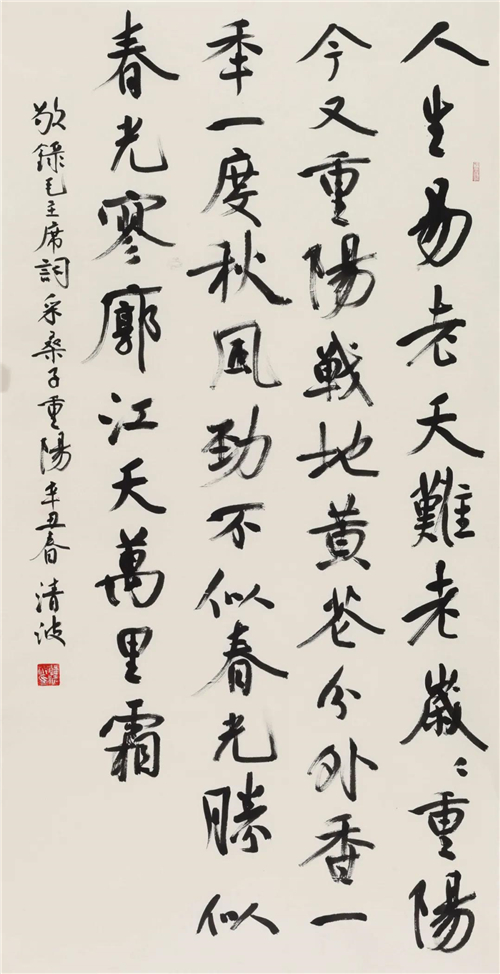 人生易老天難老歲〻重陽
今又重陽戰地黄花分外香一
年一度秋風勁不似春光勝似
春光寥廓江天萬里霜
敬錄毛主席詞采桑子重陽辛丑春清波